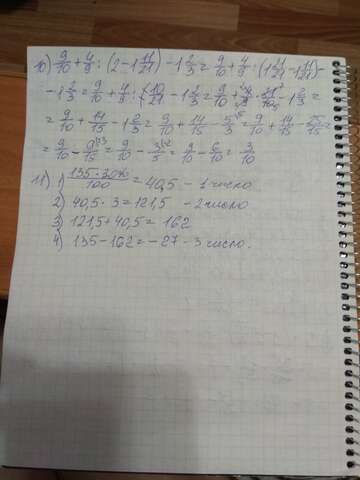 10) 9/10 + 4/9 : (2 - 1 11/21) - 1 2/3 = 9/10 + 4/9 : (1 21/21 - 1 11/21) -
- 1 2/3 = 9/10 + 4/9 : 10/21 - 1 2/3 = 9/10 + 4/9 · 21/10 - 1 2/3 =
= 9/10 + 14/15 - 1 2/3 = 9/10 + 14/15 - 5/3 = 9/10 + 14/15 - 25/15 =
= 9/10 - 3/5 = 9/10 - 6/10 = 3/10
11) 1) 135·30%/100 = 40,5 - 1 число
2) 40,5 · 3 = 121,5 - 2 число
3) 121,5 + 40,5 = 162
4) 135 - 162 = - 27 - 3 число.